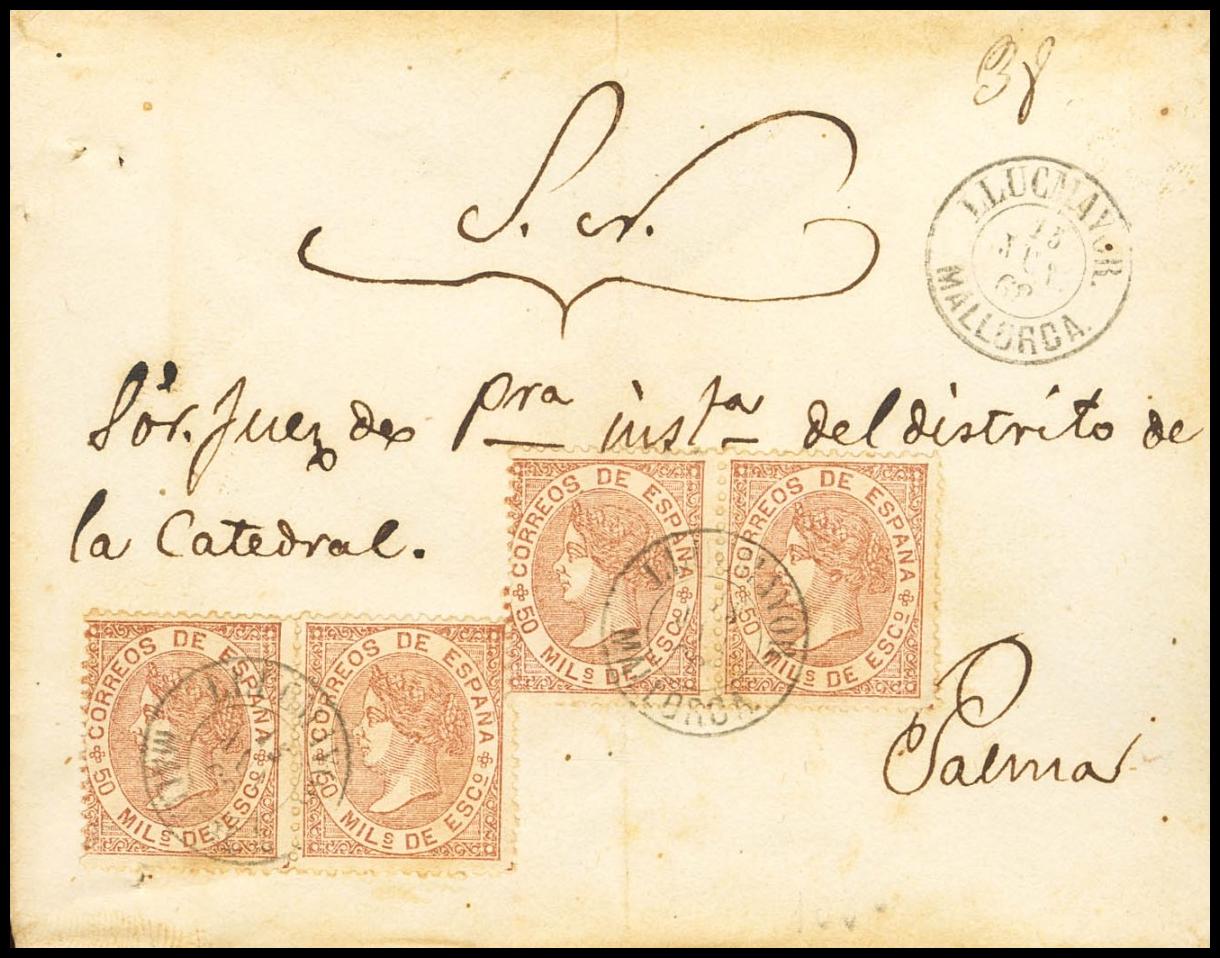 38
S. r.
LLUCMAYOR.
13
JUL
68
MALLORCA.
Sor. Juez de pra insta del distrito de
la Catedral.
CORREOS DE ESPAÑA
50 MILS DE ESCO
CORREOS DE ESPAÑA
50 MILS DE ESCO
MALLORCA
CORREOS DE ESPAÑA
50 MILS DE ESCO
CORREOS DE ESPAÑA
50 MILS DE ESCO
Palma